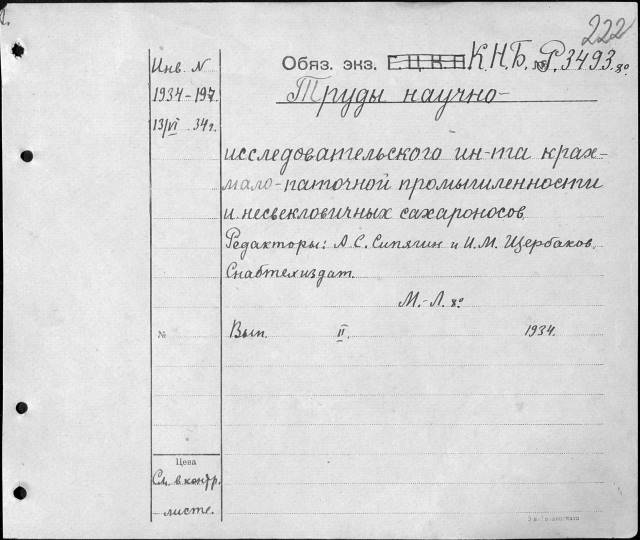 222
Инв. N
1934-197.
13/VI 34г.
Обяз. экз. Г.Ц.К.П. К.Н.Б. № Р.3493.8°
Труды научно-
исследовательского ин-та крах-
мало-паточной промышленности
и несвекловичных сахароносов
Редакторы: А.С. Сипягин и И.М. Щербаков.
Снабтехиздат.
М.-Л. 8°
№ Вып. II. 1934.
Цена
См. в контр.
листе.